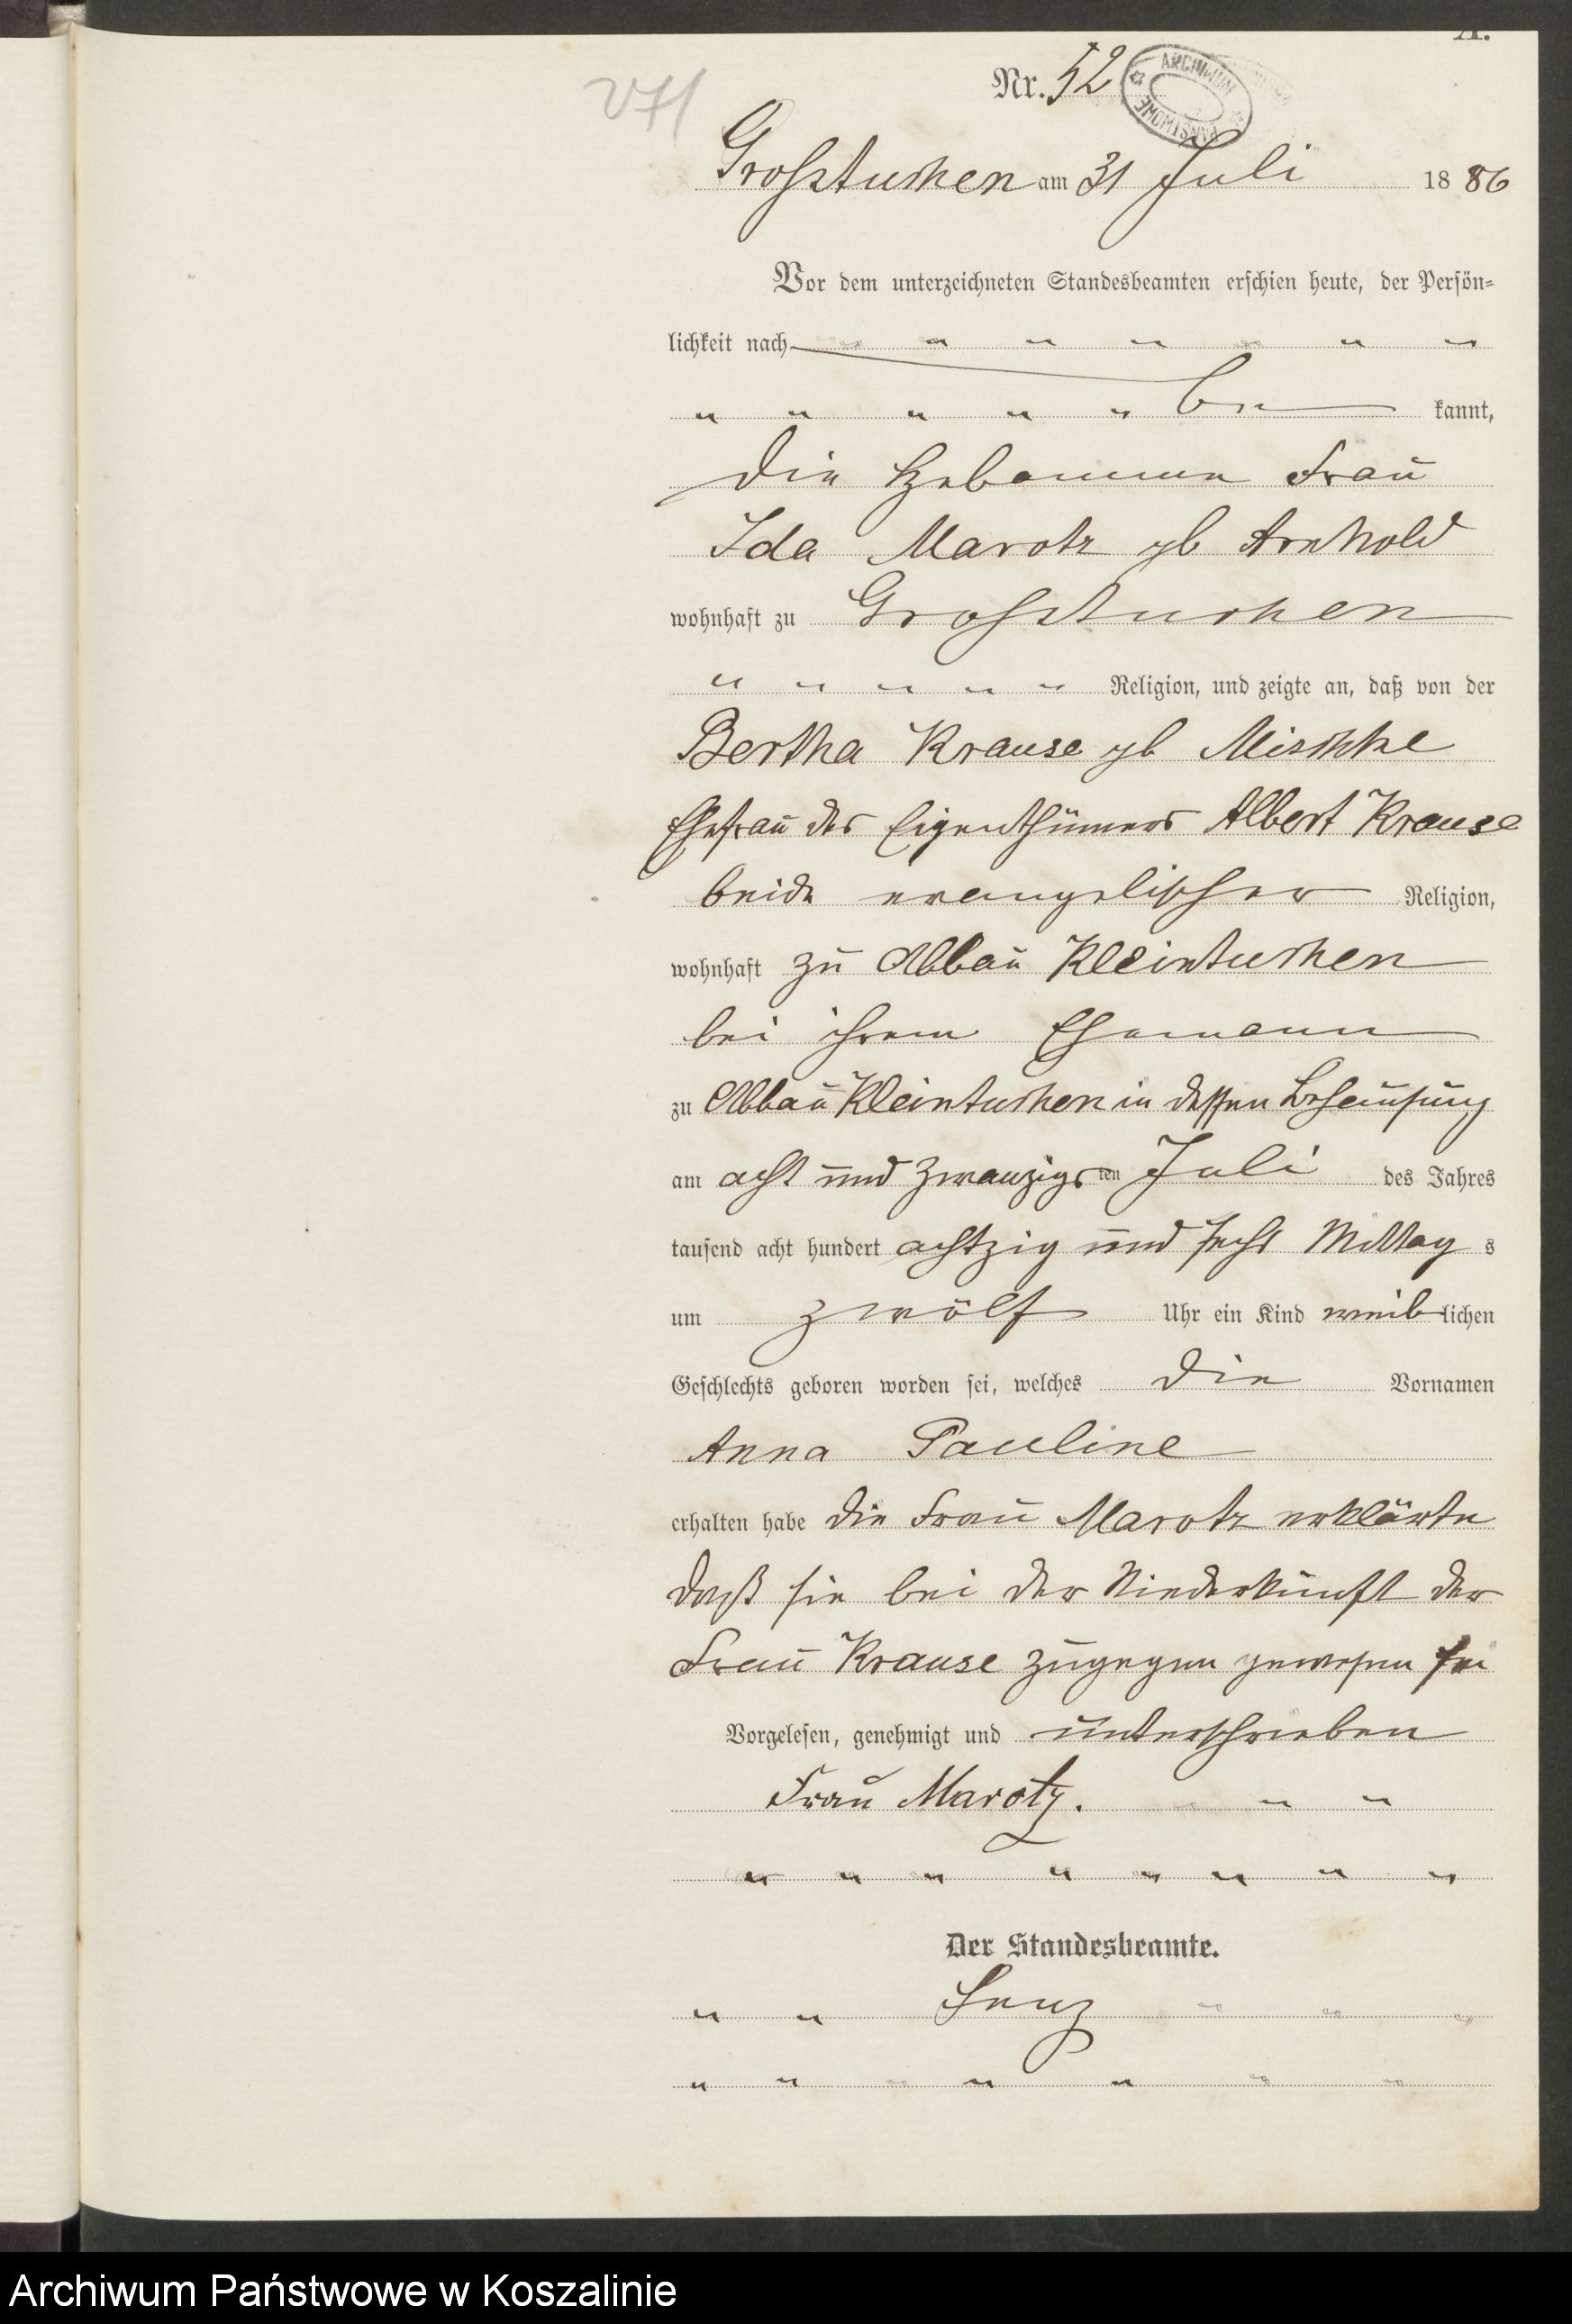 A.
Nr. 52
ARCHIWUM PAŃSTWOWE
Grosstuchen am 31 Juli 1886
Vor dem unterzeichneten Standesbeamten erschien heute, der Persön-
lichkeit nach " " " " " " "
" " " " " be kannt,
die Hebamme Frau
Ida Marotz gb Arnhold
wohnhaft zu Grosstuchen
" " " " " Religion, und zeigte an, daß von der
Bertha Krause gb Mischke
Ehefrau des Eigenthümers Albert Krause
beide evangelischer Religion,
wohnhaft zu Abbau Kleintuchen
bei ihrem Ehemann
zu Abbau Kleintuchen in dessen Behausung
am acht und zwanzigsten Juli des Jahres
tausend acht hundert achtzig und sechs Mittags
um zwölf Uhr ein Kind weiblichen
Geschlechts geboren worden sei, welches die Vornamen
Anna Pauline
erhalten habe die Frau Marotz erklärte
daß sie bei der Niederkunft der
Frau Krause zugegen gewesen sei
Vorgelesen, genehmigt und unterschrieben
Frau Marotz. " " "
" " " " " " " "
Der Standesbeamte.
" " Lenz " " "
" " " " " " "
Archiwum Państwowe w Koszalinie